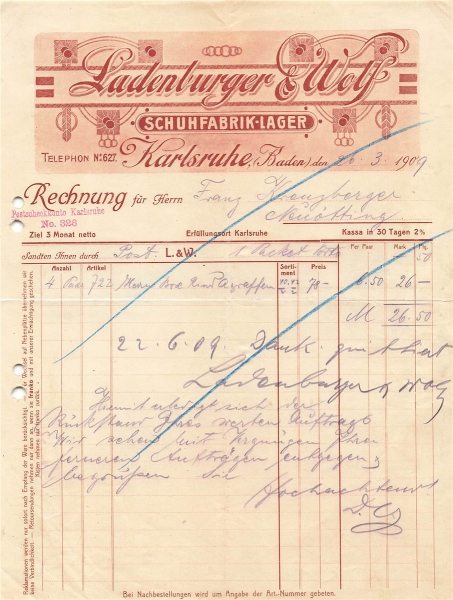 Ladenburger & Wolf
SCHUHFABRIK-LAGER
TELEPHON No. 627.
Karlsruhe, (Baden), den 26. 3. 1909.
Rechnung für Herrn Franz
Neuötting
Postscheckkonto Karlsruhe
No. 326
Ziel 3 Monat netto Erfüllungsort Karlsruhe Kassa in 30 Tagen 2%
Sandten Ihnen durch Post. L.&W. 1 Packet Per Paar Mark Pfg.
50
Anzahl Artikel Sortiment Preis
4 Paar 722 Herren Box 78- 6.50 26-
M 26.50
22.6.09. Dank quittiert
Ladenburger & Wolf
Hiermit erledigt sich der
Rückstand Ihres werten Auftrags
Wir sehen mit Vergnügen Ihren
ferneren Aufträgen entgegen,
begrüßen Sie
Hochachtend
Reklamationen werden nur sofort nach Empfang der Ware berücksichtigt.
Retoursendungen nehmen nur dann an, wenn sie franko und mit unserer Ermächtigung geschehen.
Bei Nachbestellungen wird um Angabe der Art-Nummer gebeten.